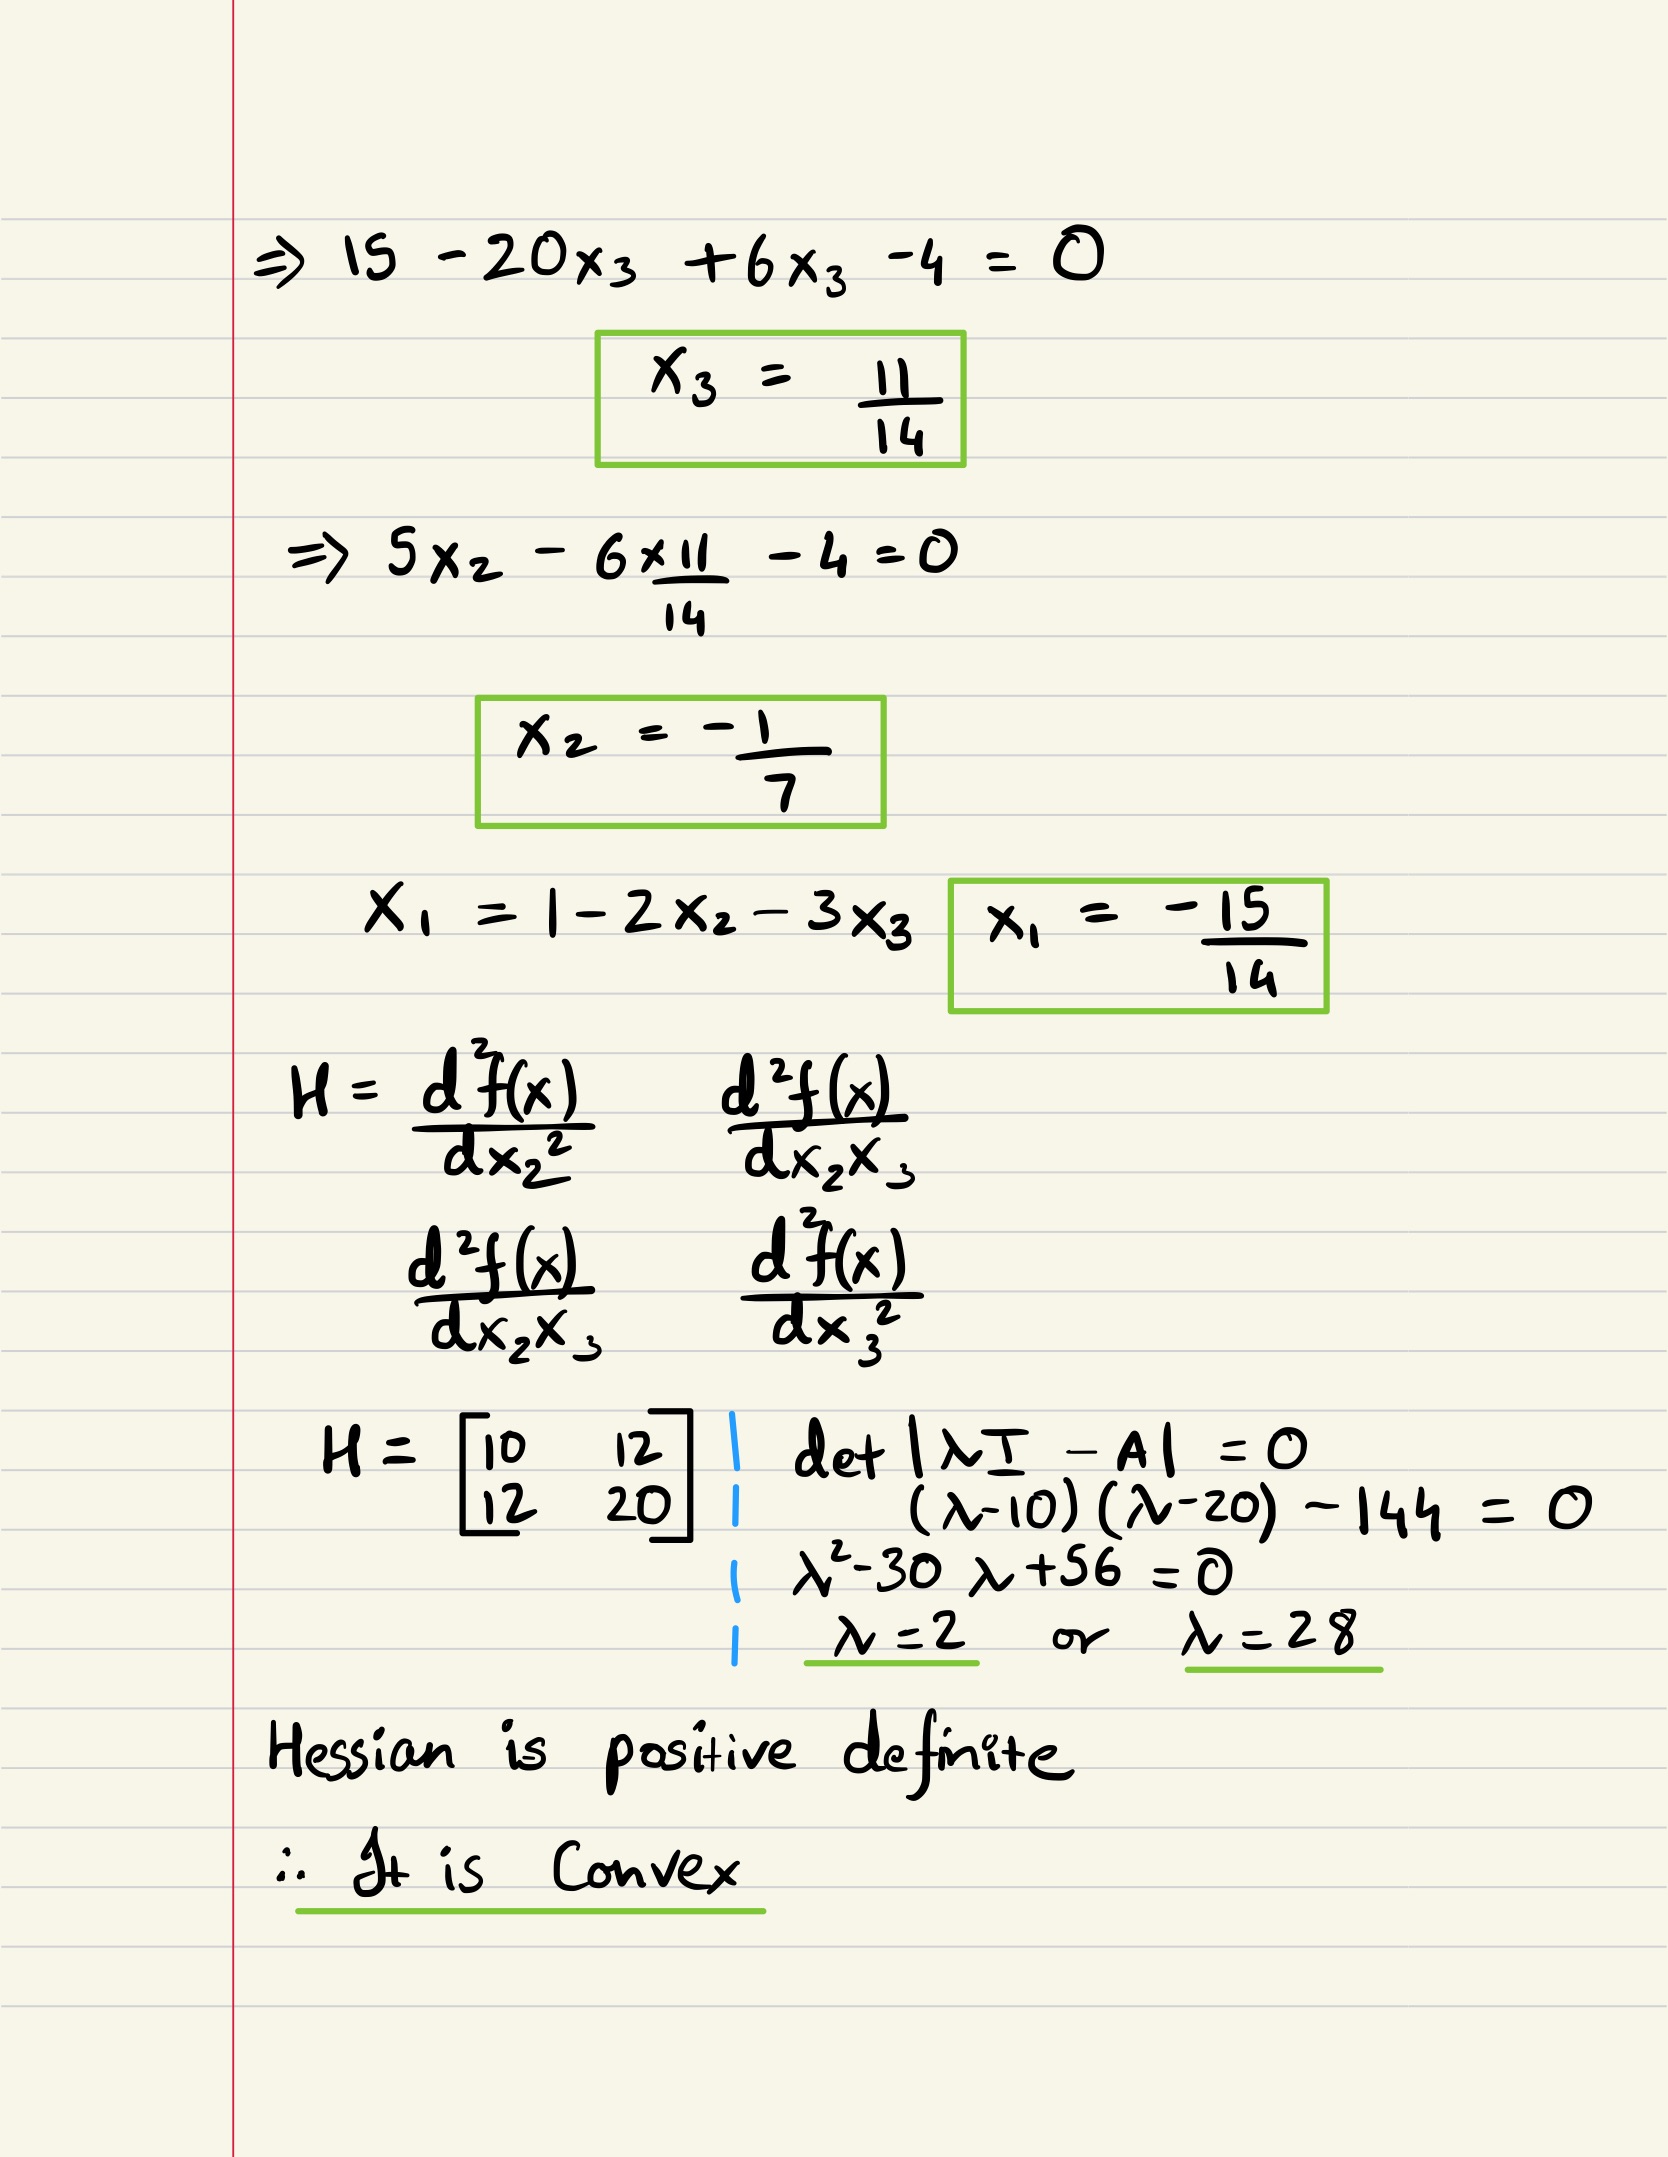 ⇒ 15 - 20x₃ + 6x₃ - 4 = 0
x₃ = 11/14
⇒ 5x₂ - 6x11/14 - 4 = 0
x₂ = -1/7
x₁ = 1 - 2x₂ - 3x₃ x₁ = -15/14
H = d²f(x)/dx₂² d²f(x)/dx₂x₃
d²f(x)/dx₂x₃ d²f(x)/dx₃²
H = [10 12 det |λI - A| = 0
12 20] (λ-10)(λ-20) - 144 = 0
λ² - 30λ + 56 = 0
λ = 2 or λ = 28
Hessian is positive definite
∴ It is Convex